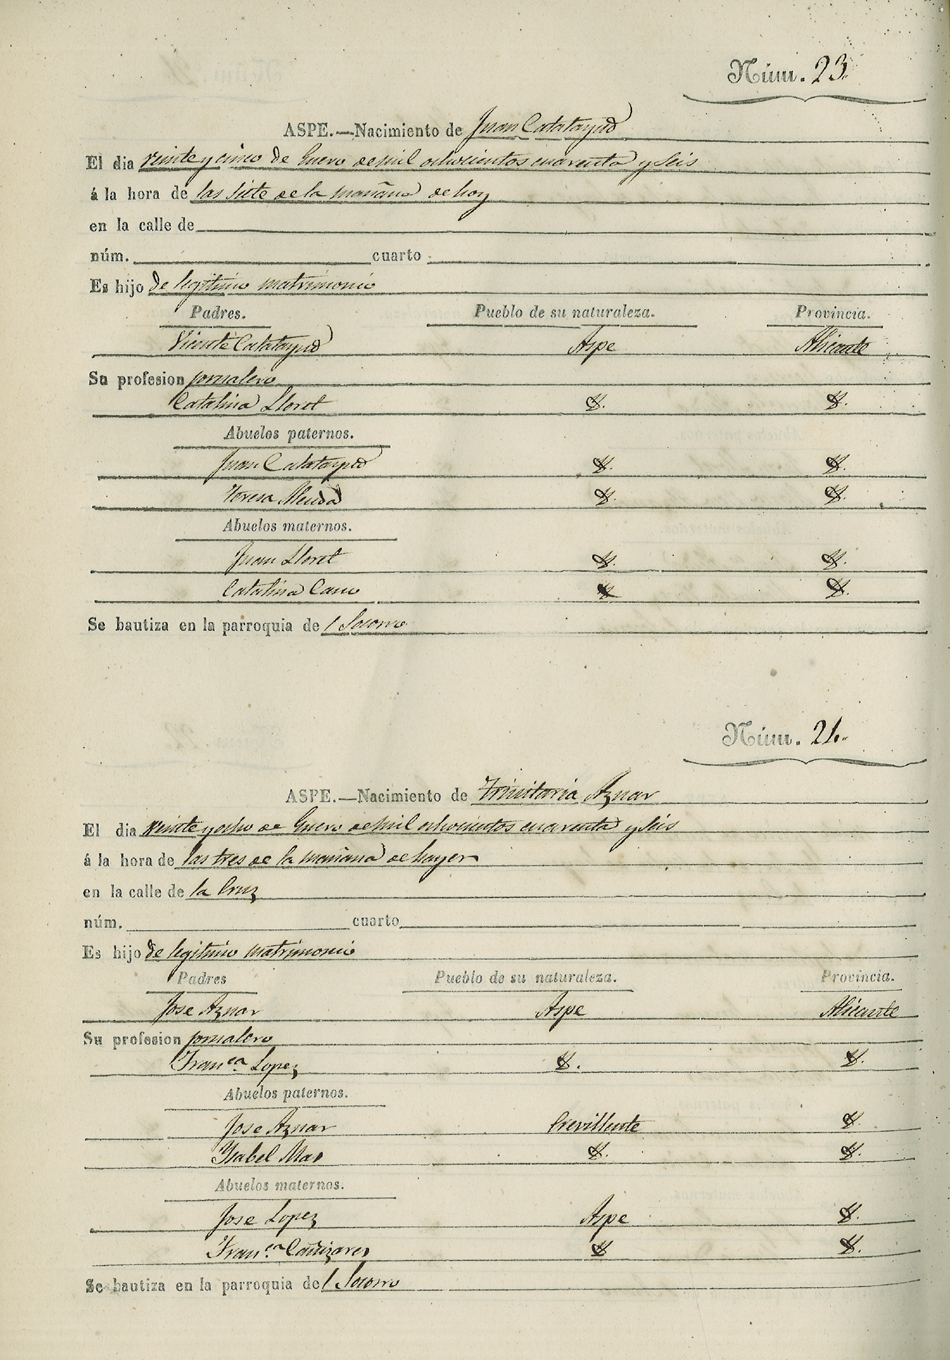 Núm. 23.
ASPE.—Nacimiento de Juan Calatayud
El dia veinte y cinco de Enero de mil ochocientos cuarenta y seis
á la hora de las siete de la mañana de hoy
en la calle de
núm. cuarto
Es hijo de legitimo matrimonio
Padres. Pueblo de su naturaleza. Provincia.
Vicente Calatayud Aspe Alicante
Su profesion jornalero
Catalina Lloret
Abuelos paternos.
Juan Calatayud
Teresa
Abuelos maternos.
Juan Lloret
Catalina Cano
Se bautiza en la parroquia de l Socorro
Núm. 24.
ASPE.—Nacimiento de Trinitaria Aznar
El dia veinte y ocho de Enero de mil ochocientos cuarenta y seis
á la hora de las tres de la mañana de hayer
en la calle de la Cruz
núm. cuarto
Es hijo de legitimo matrimonio
Padres Pueblo de su naturaleza. Provincia.
Jose Aznar Aspe Alicante
Su profesion jornalero
Fran.ca Lopez
Abuelos paternos.
Jose Aznar Crevillente
Isabel Mas
Abuelos maternos.
Jose Lopez Aspe
Fran.ca Cañizares
Se bautiza en la parroquia de l Socorro